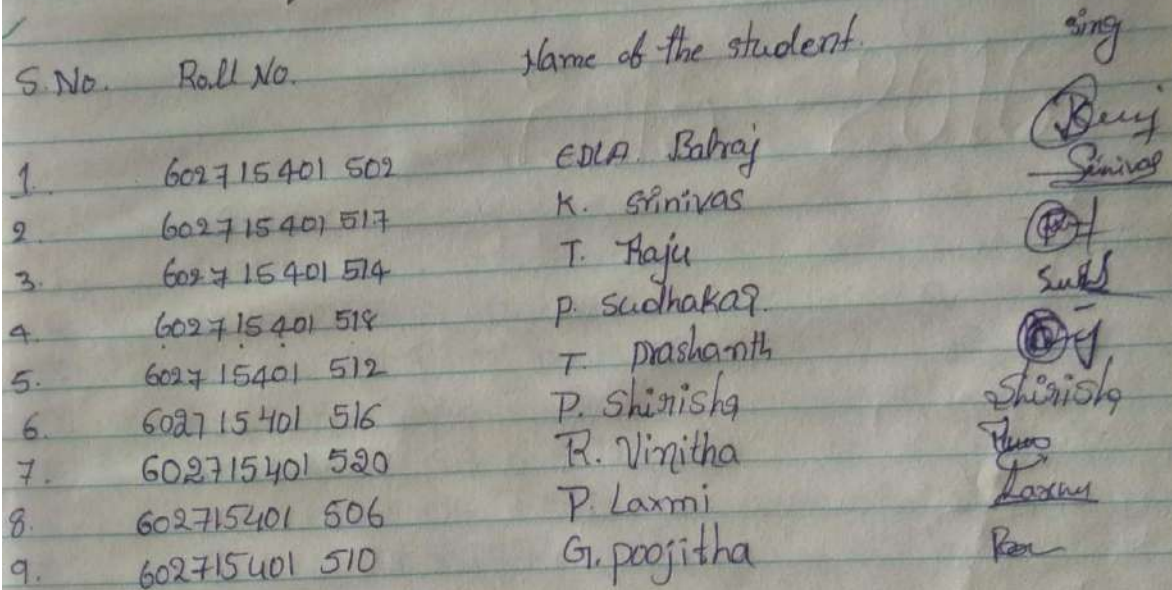 S.No. Roll No. Name of the student. sing
1. 602715401 502 EDLA Balraj
2. 602715401 517 K. Srinivas Srinivas
3. 602715401 514 T. Raju
4. 602715401 518 P. Sudhakar
5. 602715401 512 T. Prashanth
6. 602715401 516 P. Shirisha Shirisha
7. 602715401 520 R. Vinitha
8. 602715401 506 P. Laxmi Laxmi
9. 602715401 510 G. poojitha